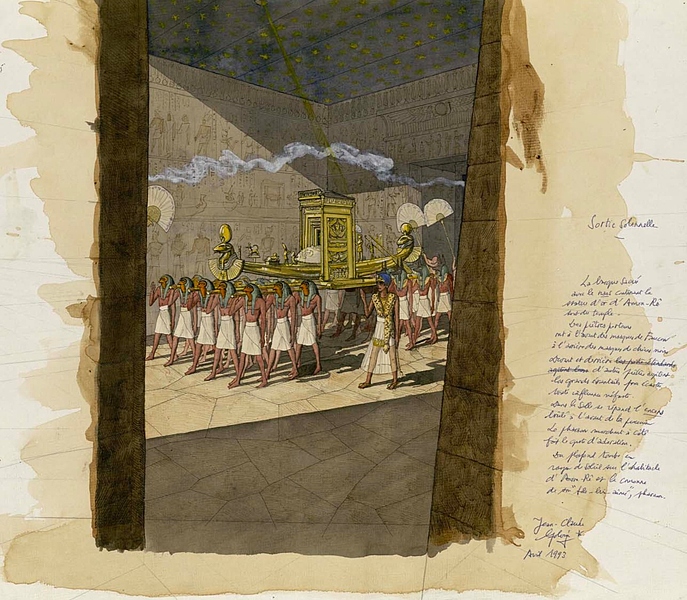 Sortie Solennelle
La barque sacrée
avec le naos contenant la
statue d'or d'Amon-Rê
sort du temple.
Des prêtres porteurs
ont à l'avant des masques de faucon
à l'arrière des masques de chiens noirs
Devant et derrière d'autres prêtres agitent
les grands éventails pour écarter
toute influence néfaste.
Dans la salle se répand l'encens
à l'avant de la
Le pharaon marchant à côté
fait le geste d'adoration.
Du plafond tombe un
rayon de soleil sur l'habitacle
d'Amon-Rê et la couronne
de son "fils-bien-aimé", pharaon.
Jean-Claude
Golvin
Avril 1993